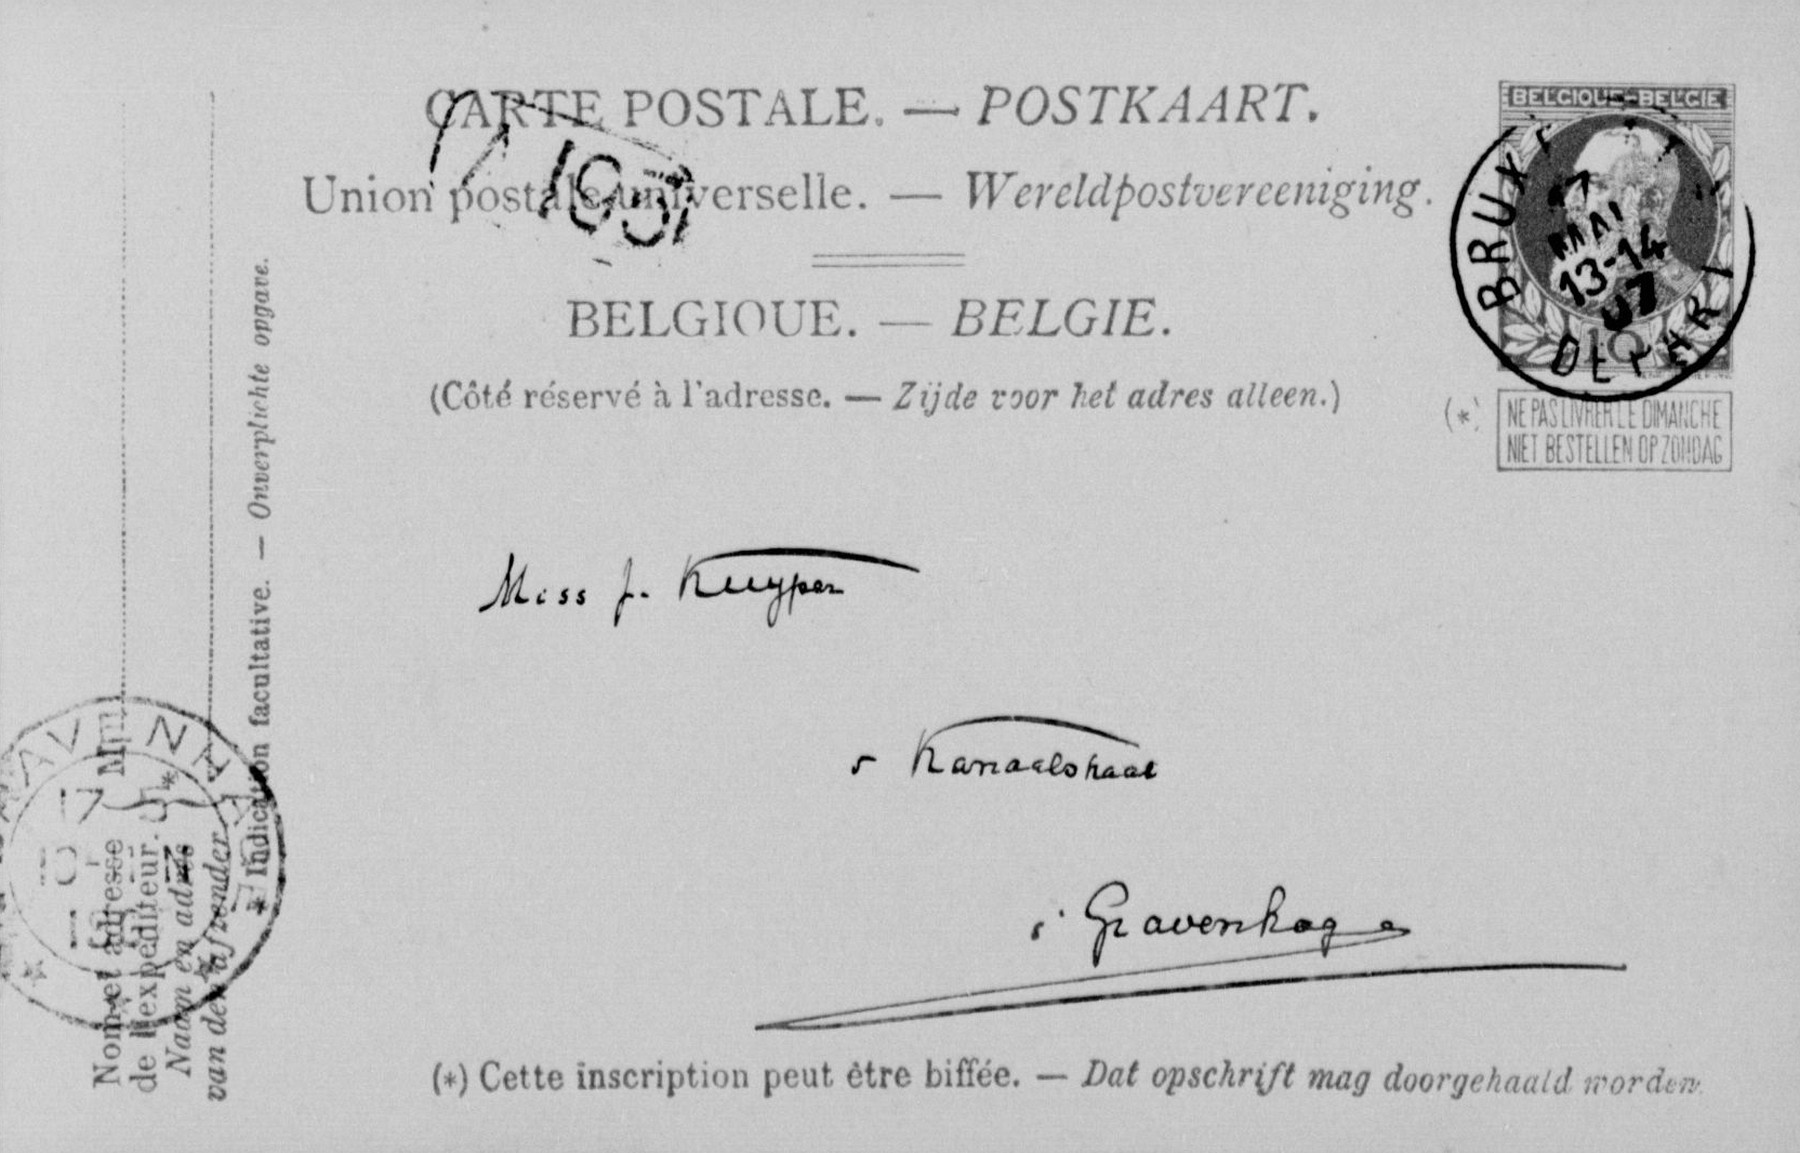 CARTE POSTALE. — POSTKAART.
Union postale universelle. — Wereldpostvereeniging.
BELGIQUE. — BELGIE.
(Côté réservé à l'adresse. — Zijde voor het adres alleen.)
BELGIQUE-BELGIE
BRUX
17
MAI
13-14
07
10
(*)
NE PAS LIVRER LE DIMANCHE
NIET BESTELLEN OP ZONDAG
Miss J. Kuyper
5 Kanaalstraat
s' Gravenhage
(*) Cette inscription peut être biffée. — Dat opschrift mag doorgehaald worden.
Nom et adresse
de l'expéditeur.
Naam en adres
van den afzender
* Indication facultative. — Onverplichte opgave.
17